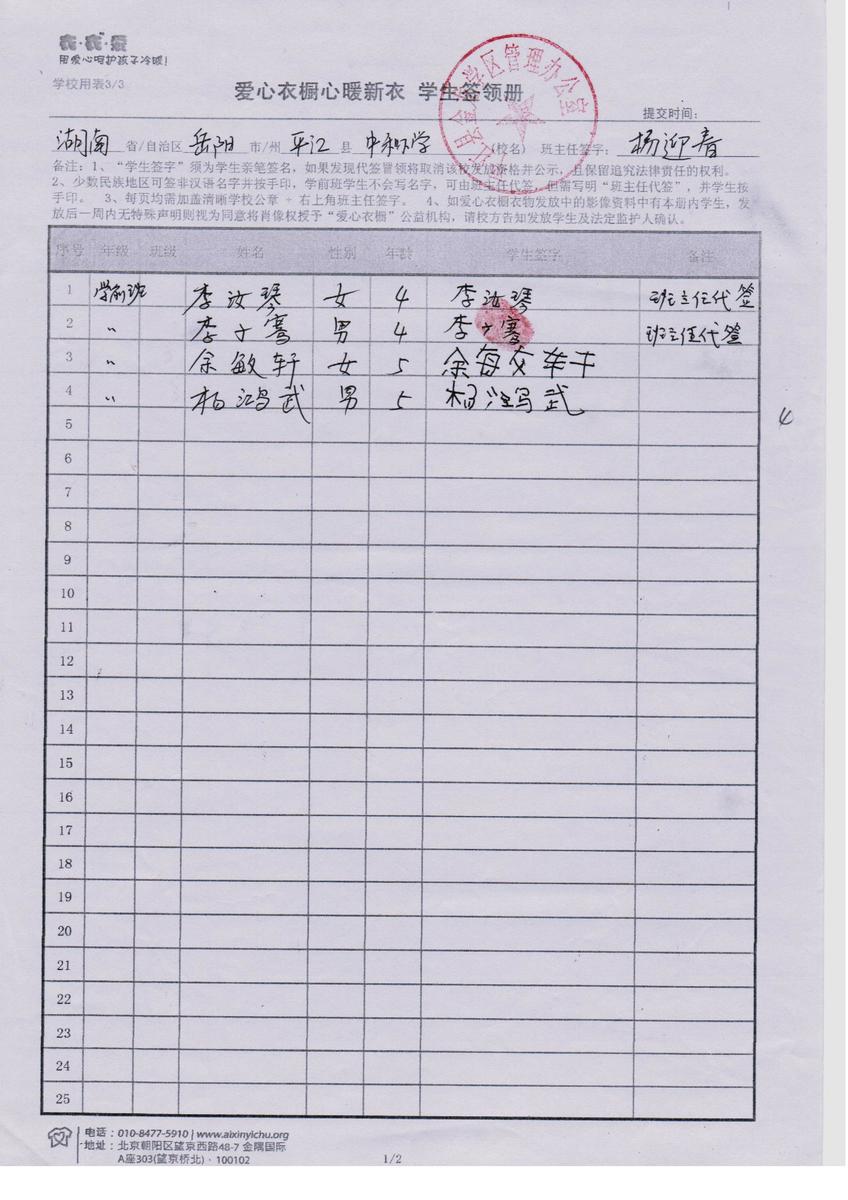 衣·衣·爱
用爱心呵护孩子冷暖!
学校用表3/3
爱心衣橱心暖新衣 学生签领册
学区管理办公室
提交时间:
湖南 省/自治区 岳阳 市/州 平江 县 (校名) 班主任签字: 杨迎春
备注: 1、“学生签字”须为学生亲笔签名,如果发现代签冒领将取消该校发放资格并公示,且保留追究法律责任的权利。
2、少数民族地区可签非汉语名字并按手印,学前班学生不会写名字,可由班主任代签,但需写明“班主任代签”,并学生按
手印。 3、每页均需加盖清晰学校公章 + 右上角班主任签字。 4、如爱心衣橱衣物发放中的影像资料中有本册内学生,发
放后一周内无特殊声明则视为同意将肖像权授予“爱心衣橱”公益机构,请校方告知发放学生及法定监护人确认。
序号 年级 班级 姓名 性别 年龄 学生签字 备注
1 学前班 李汝琴 女 4 李汝琴 班主任代签
2 〃 李子骞 男 4 李子骞 班主任代签
3 〃 余敏轩 女 5 余敏轩
4 〃 杨鸿武 男 5 杨鸿武
4
5
6
7
8
9
10
11
12
13
14
15
16
17
18
19
20
21
22
23
24
25
电话: 010-8477-5910 | www.aixinyichu.org
地址: 北京朝阳区望京西路48-7 金隅国际
A座303(望京桥北)· 100102
1/2